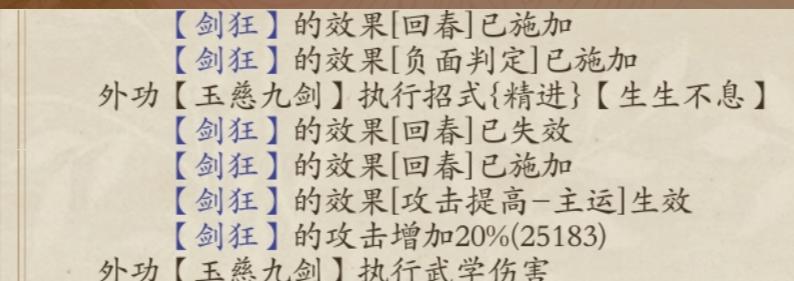 【剑狂】的效果[回春]已施加
【剑狂】的效果[负面判定]已施加
外功【玉慈九剑】执行招式{精进}【生生不息】
【剑狂】的效果[回春]已失效
【剑狂】的效果[回春]已施加
【剑狂】的效果[攻击提高-主运]生效
【剑狂】的攻击增加20%(25183)
外功【玉慈九剑】执行武学伤害